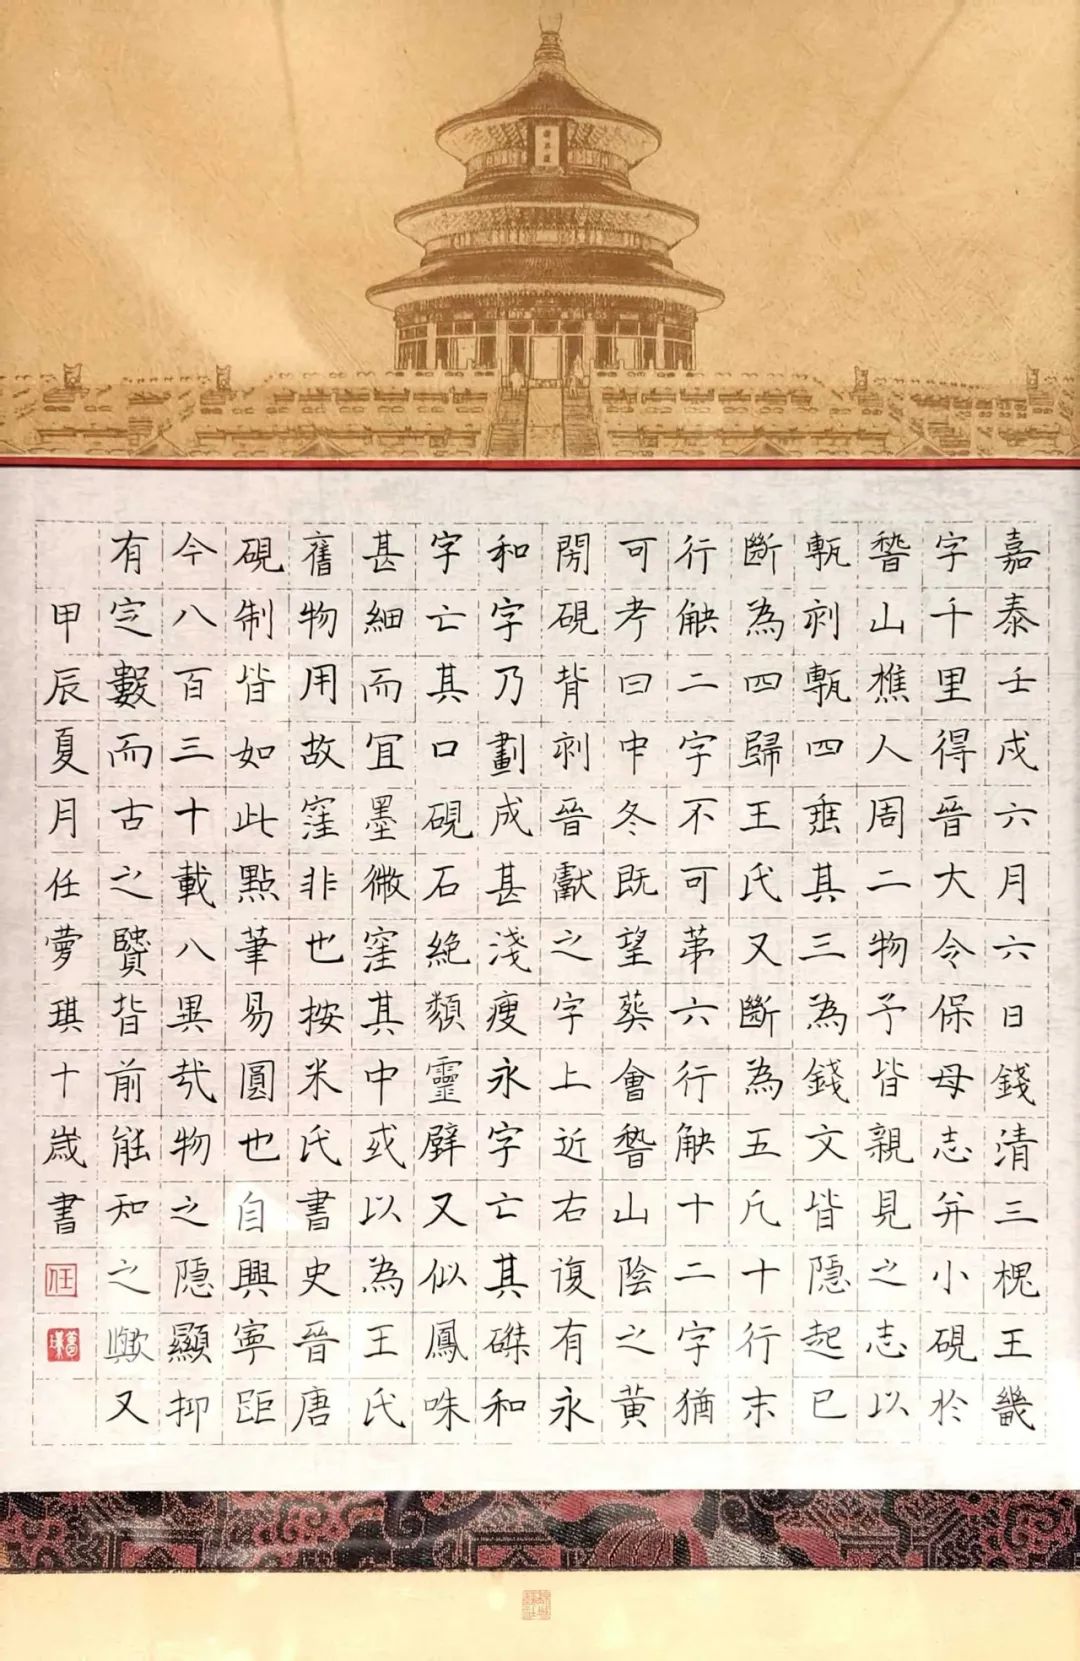 祈年殿
嘉泰壬戌六月六日錢清三槐王畿
字千里得晉大令保母志并小硯於
稽山樵人周二物予皆親見之志以
甎刻甎四垂其三為錢文皆隱起已
斷為四歸王氏又斷為五凡十行末
行缺二字不可苐六行缺十二字猶
可考曰中冬既望葬會稽山陰之黃
閍硯背刻晉獻之字上近右復有永
和字乃劃成甚淺瘦永字亡其磔和
字亡其口硯石絕類靈壁又似鳳咮
甚細而宜墨微窪其中或以為王氏
舊物用故窪非也按米氏書史晉唐
硯制皆如此點筆易圓也自興寧距
今八百三十載八異哉物之隱顯抑
有定數而古之賢皆前能知之歟又
甲辰夏月任夢琪十歲書
任
夢琪